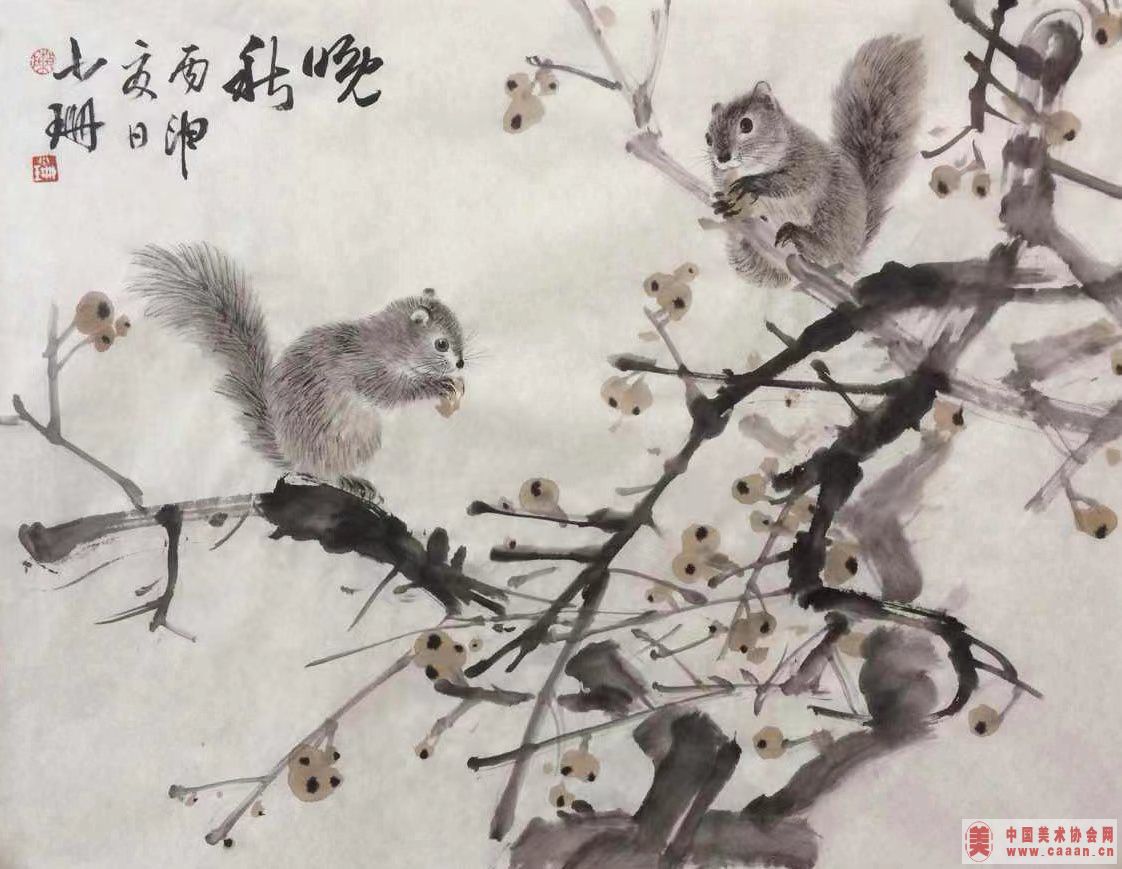 晚秋
丙申
夏日
珊
中国美术协会网
www.caaan.cn
美